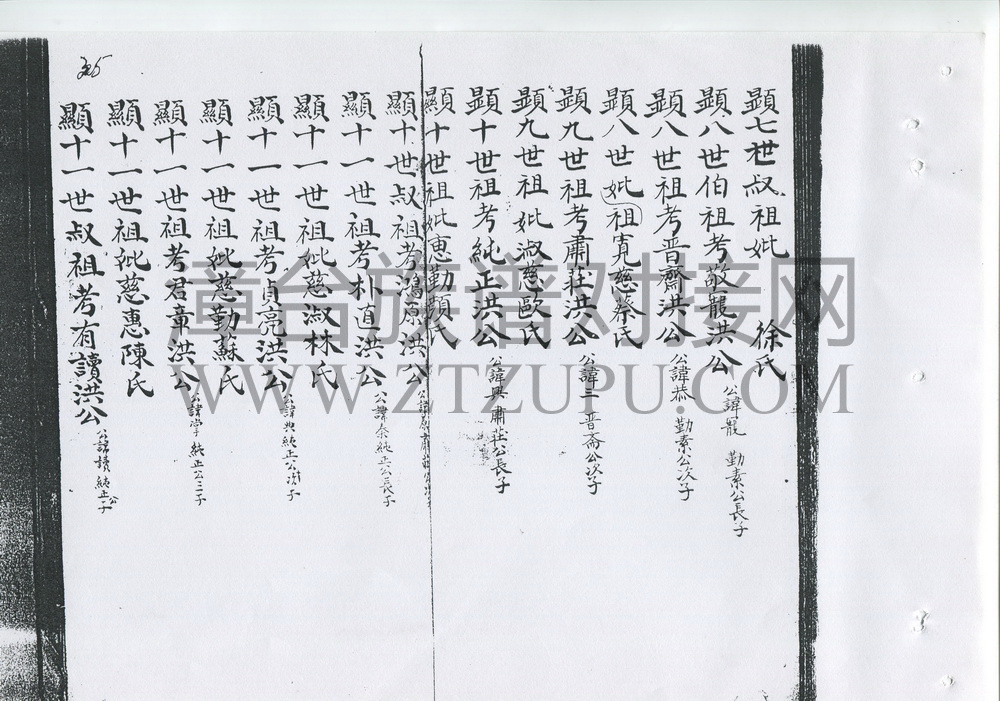 顯七世叔祖妣 徐氏
顯八世伯祖考敬龍洪公 公諱龍 勤素公長子
顯八世祖考晋齋洪公 公諱恭 勤素公次子
顯八世妣祖寬慈蔡氏
顯九世祖考肅莊洪公 公諱二 晋斋公次子
顯九世祖妣淑慈歐氏
顯十世祖考純正洪公 公諱興 肅莊公長子
顯十世祖妣惠勤顏氏
顯十世叔祖考鴻原洪公
顯十一世祖考朴直洪公 公諱泰純正公長子
顯十一世祖妣慈淑林氏
顯十一世祖考貞亮洪公 公諱典純正公次子
顯十一世祖妣慈勤蘇氏
顯十一世祖考君章洪公 公諱掌純正公三子
顯十一世祖妣慈惠陳氏
顯十一世叔祖考有讀洪公 公諱積純正公子
漳台族谱对接网
WWW.ZTZUPU.COM